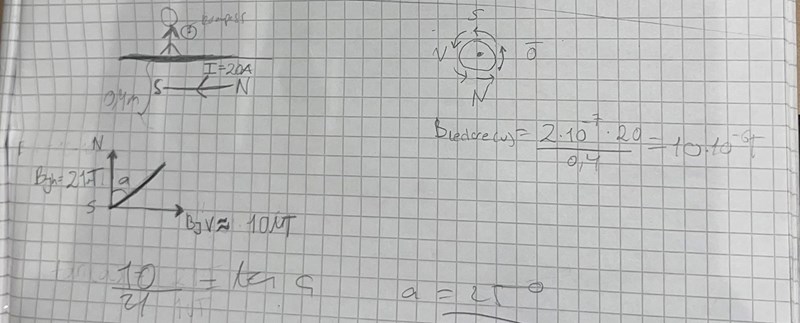 kompass
I=20A
S N
0,4m
S
V Ö
N
B ledare(v) = 2·10⁻⁷·20 / 0,4 = 10·10⁻⁶T
N
Bjh=21µT a
S
BjV≈ 10µT
10 / 21 = tan a
a = 25°